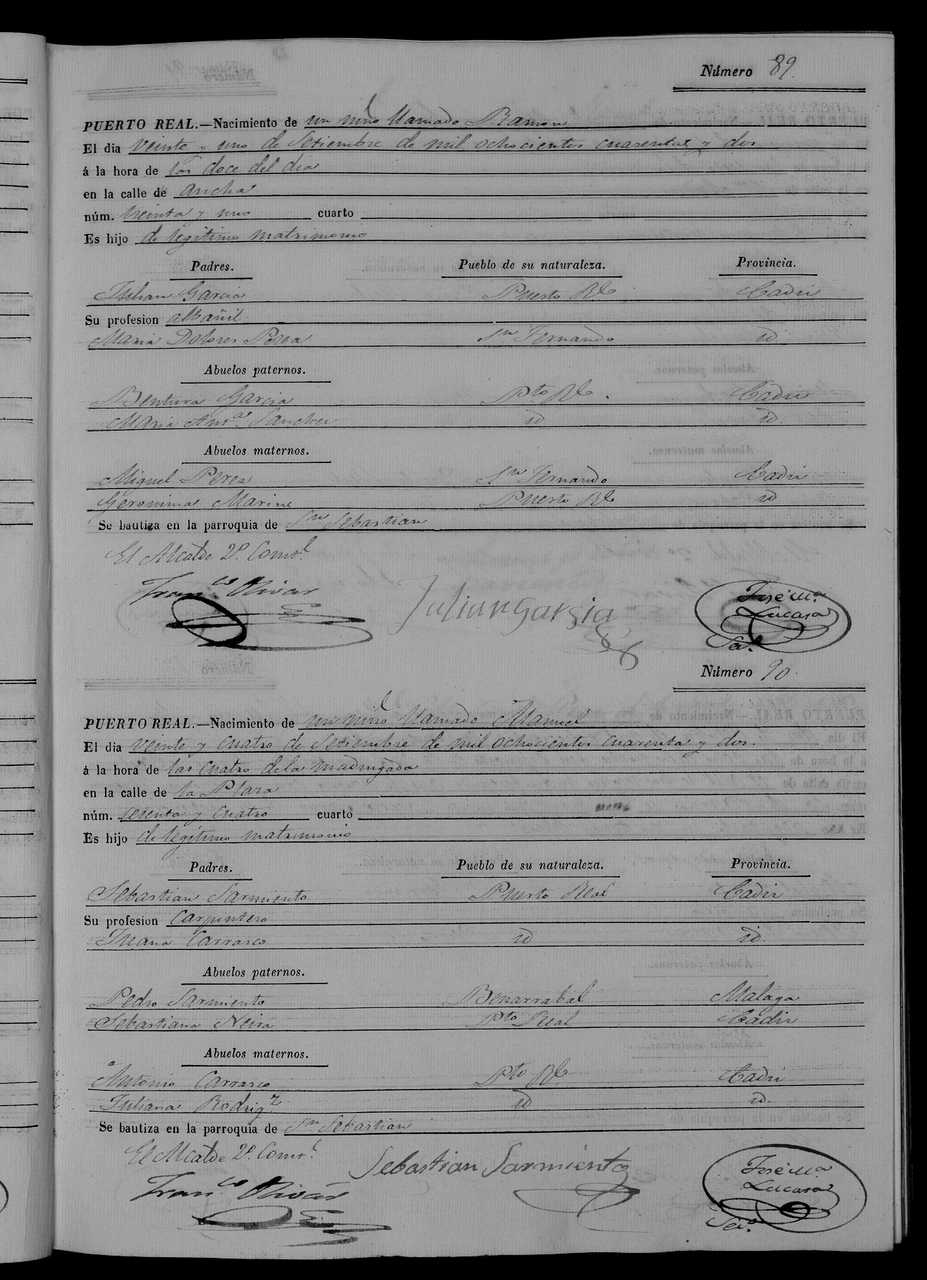 Número 89.
PUERTO REAL.—Nacimiento de un niño llamado Ramon
El dia veinte y uno de Setiembre de mil ochocientos cuarenta y dos
á la hora de las doce del dia
en la calle de Ancha
núm. treinta y uno cuarto
Es hijo de legitimo matrimonio
Padres. Pueblo de su naturaleza. Provincia.
Julian Garcia Puerto Rl Cadiz
Su profesion albañil
Maria Dolores Perea Sn Fernando id.
Abuelos paternos.
Bentura Garcia Pto Rl. Cadiz
Maria Sanchez id id.
Abuelos maternos.
Miguel Perea Sn Fernando Cadiz
Geronima Marine Puerto Rl id
Se bautiza en la parroquia de Sn Sebastian
El Alcalde 2º Coml.
Franco Rivas Julian Garsia José Ma
Lucara
Número 90.
PUERTO REAL.—Nacimiento de un niño llamado Manuel
El dia veinte y cuatro de Setiembre de mil ochocientos cuarenta y dos.
á la hora de las cuatro de la madrugada
en la calle de la Plaza
núm. y cuatro cuarto
Es hijo de legitimo matrimonio
Padres. Pueblo de su naturaleza. Provincia.
Sebastian Sarmiento Puerto Real Cadiz
Su profesion Carpintero
Juana Carrasco id id.
Abuelos paternos.
Pedro Sarmiento Benarrabal Malaga
Sebastiana Neira Pto Real Cadiz
Abuelos maternos.
Antonio Carrasco Pto Rl Cadiz
Juliana Rodrigz id id.
Se bautiza en la parroquia de Sn Sebastian
El Alcalde 2º Coml.
Franco Rivas Sebastian Sarmiento José Ma
Lucara